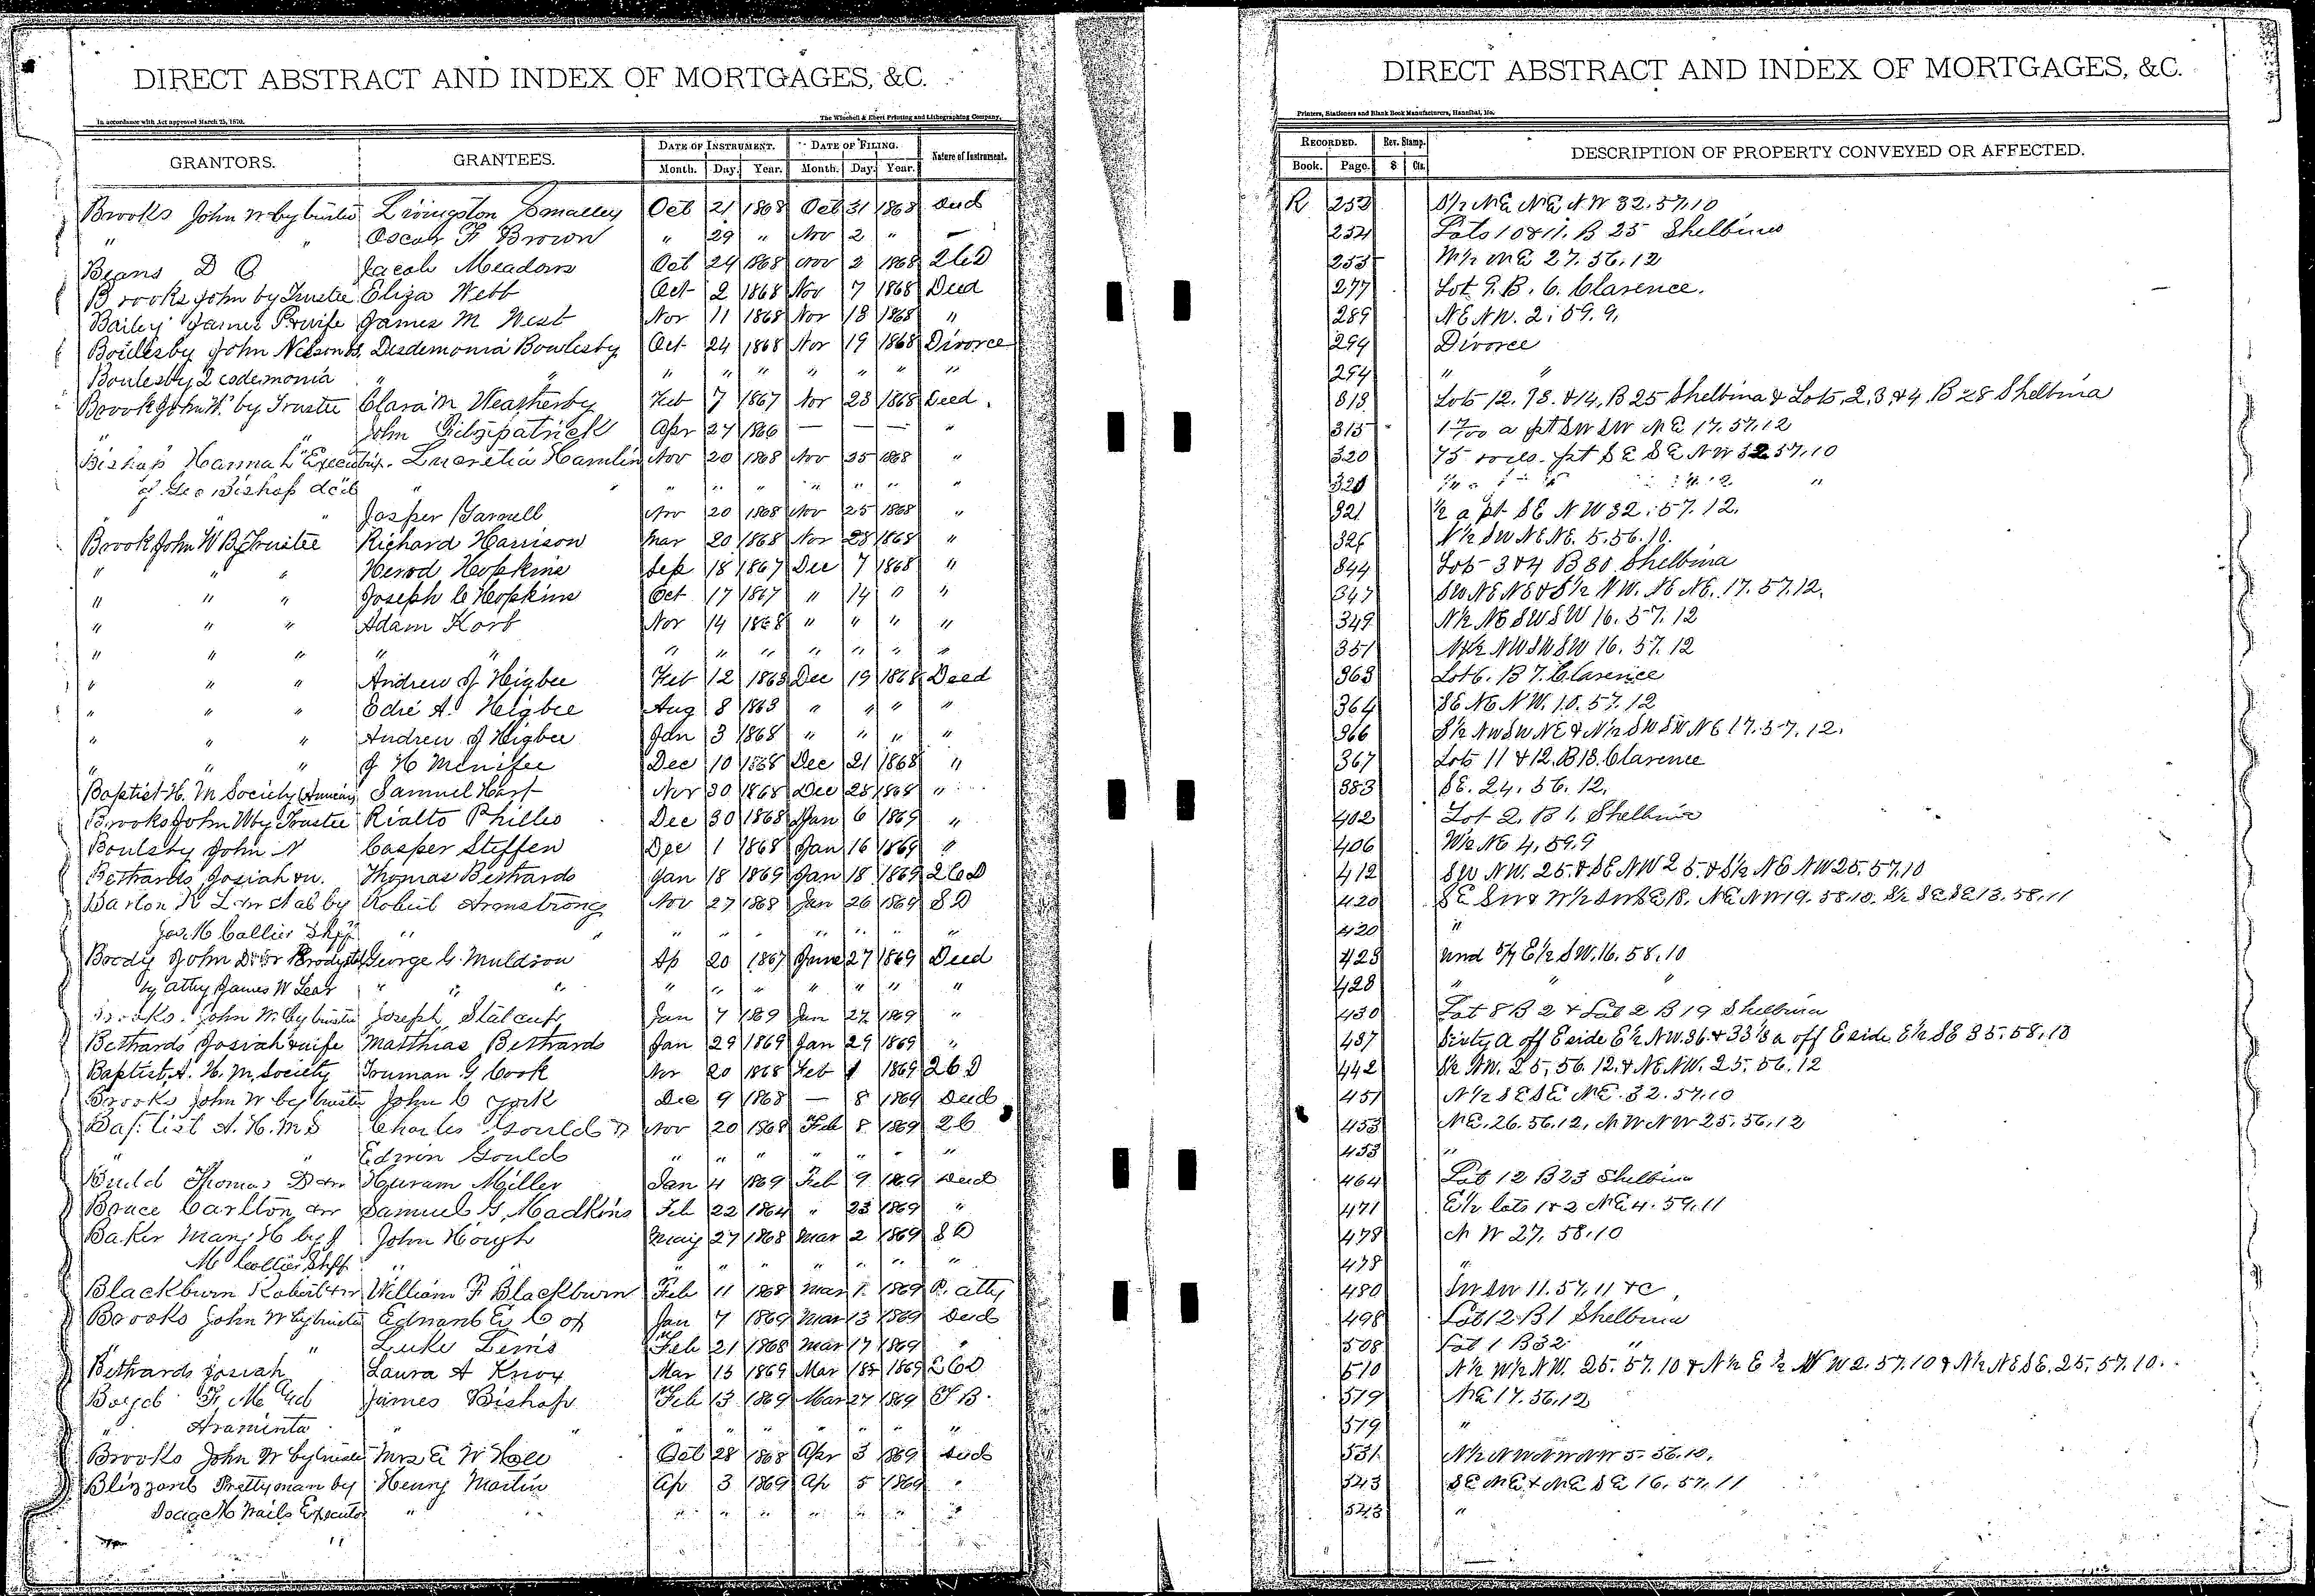 DIRECT ABSTRACT AND INDEX OF MORTGAGES, &C.
In accordance with Act approved March 25, 1870.
The Winchell & Ebert Printing and Lithographing Company,
GRANTORS. GRANTEES. DATE OF INSTRUMENT. DATE OF FILING. Nature of Instrument.
Month. Day. Year. Month. Day. Year.
Brooks John W by trustee Livingston Smalley Oct 21 1868 Oct 31 1868 Deed
" " Oscar F Brown " 29 " Nov 2 " —
Beans D C Jacob Meadows Oct 24 1868 Nov 2 1868 QCD
Brooks John by Trustee Eliza Webb Oct 2 1868 Nov 7 1868 Deed
Bailey James P & wife James M West Nov 11 1868 Nov 13 1868 "
Boulesby John Nelson Desdemonia Bowlesby Oct 24 1868 Nov 19 1868 Divorce
Boulesby Desdemonia " " " " " " " " "
Brook John W. by Trustee Clara M Weatherby Feb 7 1867 Nov 23 1868 Deed.
" " John Fitzpatrick Apr 27 1866 — — — "
Bishop Hannah Executrix. Lucretia Hamlin Nov 20 1868 Nov 25 1868 "
of Geo Bishop dec'd " " " " " " " " "
" " Jasper Nov 20 1868 Nov 25 1868 "
Brook John W By Trustee Richard Harrison Mar 20 1868 Nov 28 1868 "
" " " Herod Hopkins Sep 18 1867 Dec 7 1868 "
" " " Joseph C Hopkins Oct 17 1867 " 14 " "
" " " Adam Korb Nov 14 1868 " " " "
" " " " " " " " " " " "
" " " Andrew J Higbee Feb 12 1868 Dec 19 1868 Deed
" " " Edré A. Higbee Aug 8 1863 " " " "
" " " Andrew J Higbee Jan 3 1868 " " " "
" " " J H Menifee Dec 10 1868 Dec 21 1868 "
Baptist H. M Society (American) Samuel Hart Nov 30 1868 Dec 28 1868 "
Brooks John W by Trustee Rialto Philles Dec 30 1868 Jan 6 1869 "
Boulsby John N Casper Steffen Dec 1 1868 Jan 16 1869 "
Bethards Josiah & w. Thomas Bethards Jan 18 1869 Jan 18 1869 QCD
Barton K L by Robert Armstrong Nov 27 1868 Jan 26 1869 SD
Jos. M Collier Shff " " " " " " " " "
Brody John D George G. Muldrow Ap 20 1867 June 27 1869 Deed
by atty James W Lear " " " " " " " " " "
Brooks John W. by trustee Joseph Stalcup Jan 7 1869 Jan 27 1869 "
Bethards Josiah & wife Matthias Bethards Jan 29 1869 Jan 29 1869 "
Baptist A. H. M. Society Truman G. Cook Nov 20 1868 Feb 1 1869 QCD
Brooks John W by trustee John C York Dec 9 1868 — 8 1869 Deed
Baptist A. H. M S Charles Gould & Nov 20 1868 Feb 8 1869 QC
" " Edwin Gould " " " " " " "
Budd Thomas D & w Huram Miller Jan 4 1869 Feb 9 1869 Deed
Bruce Carlton & w Samuel G. Madkins Feb 22 1864 " 23 1869 "
Baker Mary H by J John Hough May 27 1868 Mar 2 1869 SD
M Collier Shff " " " " " " " " "
Blackburn Robert & w William F Blackburn Feb 11 1868 Mar 1 1869 P. atty
Brooks John W by trustee Edward E Cox Jan 7 1869 Mar 13 1869 Deed
" " Luke Lewis Feb 21 1868 Mar 17 1869 "
Bethards Josiah Laura A Knox Mar 15 1869 Mar 18 1869 QCD
Boyd F. M. and James Bishop Feb 13 1869 Mar 27 1869 T B.
" Araminta " " " " " " " " "
Brooks John W by trustee Mrs E W Hall Oct 28 1868 Apr 3 1869 Deed
Blizzard Prettyman by Henry Martin Ap 3 1869 Ap 5 1869 "
Isaac M Wails Executor " " " " " " " " "
DIRECT ABSTRACT AND INDEX OF MORTGAGES, &C.
Printers, Stationers and Blank Book Manufacturers, Hannibal, Mo.
RECORDED. Rev. Stamp. DESCRIPTION OF PROPERTY CONVEYED OR AFFECTED.
Book. Page. $ Cts.
R 253 S½ NE NE NW 32.57.10
254 Lots 10 & 11. B 25 Shelbina
255 W½ NE 27.56.12
277 Lot 9. B. 6. Clarence.
289 NE NW. 2.59.9.
294 Divorce
294 " "
313 Lots 12. 13. & 14, B 25 Shelbina & Lots, 2, 3, & 4. B 28 Shelbina
315 a pt SW SW NE 17.57.12
320 75 pt SE SE NW 32 57.10
321
321 ½ a pt SE NW 32.57.12.
326 N½ SW NE NE. 5.56.10.
344 Lots 3 & 4 B 30 Shelbina
347 SW NE NE & S½ NW. NE NE. 17.57.12.
349 N½ NE SW SW 16.57.12
351 N½ NW SW SW 16.57.12
363 Lot 6. B 7. Clarence
364 SE NE NW. 10.57.12
366 S½ NW SW NE & N½ SW SW NE 17.57.12.
367 Lots 11 & 12. B 13. Clarence
383 SE. 24.56.12.
402 Lot 2. B 1. Shelbina
406 W½ NE 4.59.9
412 SW NW. 25. & SE NW 25. & S½ NE NW 25.57.10
420 SE SW & W½ SW SE 18. NE NW 19.58.10. S½ SE SE 13.58.11
420 "
428 und 5/7 E½ SW. 16.58.10
428 " "
430 Lot 8 B 2 & Lot 2 B 19 Shelbina
437 Sixty a off E side E½ NW. 36. & 33⅓ a off E side E½ SE 35.58.10
442 S½ NW. 25.56.12. & NE NW. 25.56.12
451 N½ SE SE NE. 32.57.10
453 NE. 26.56.12, NW NW 25.56.12
453 "
464 Lot 12 B 23 Shelbina
471 E½ lots 1 & 2 NE 4.59.11
478 NW 27.58.10
478 "
480 SW SW 11.57.11 &c,
498 Lot 12 B 1 Shelbina
508 Lot 1 B 32 "
510 N½ W½ NW. 25.57.10 & N½ E½ NW 2.57.10 & N½ NE SE. 25.57.10.
519 NE 17.56.12
519 "
531 N½ NW NW NW 5.56.10.
543 SE NE & NE SE 16.57.11
543 "